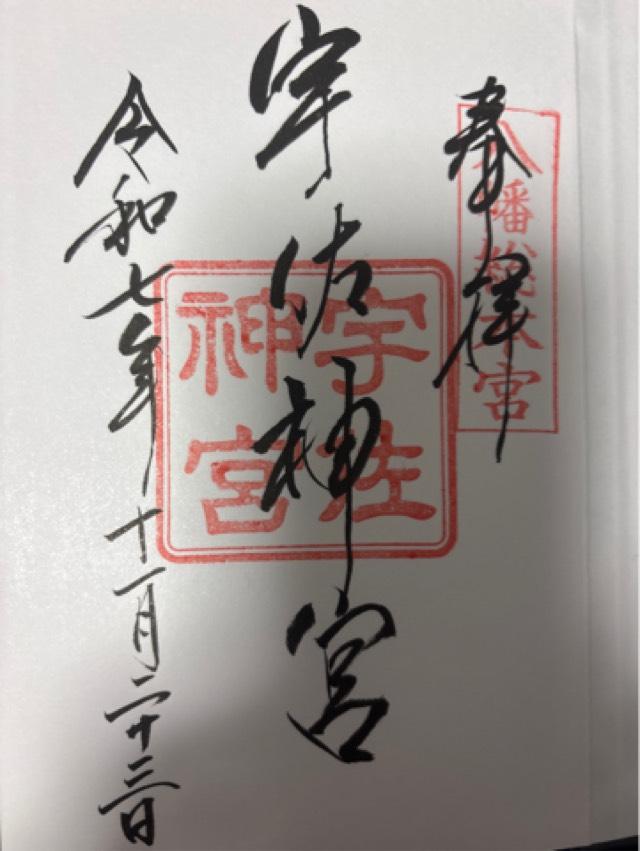 奉拝
八幡総本宮
宇佐神宮
宇佐
神宮
令和七年十一月二十三日